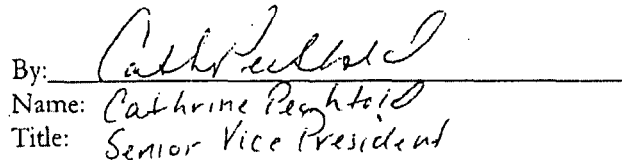 By:
Name: Cathrine Pechtold
Title: Senior Vice President